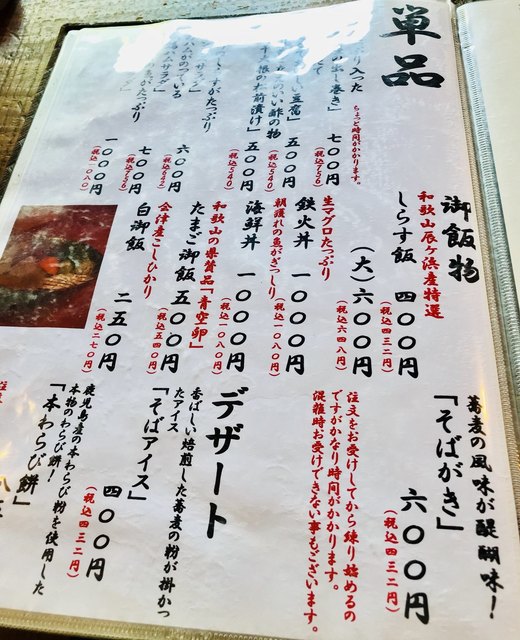 単品
り入った
の出し巻き」
ちょっと時間がかかります。
七〇〇円
(税込756)
豆腐」
いい酢の物
五〇〇円
(税込540)
大根の木前漬け」
五〇〇円
(税込540)
サラダ」
六〇〇円
(税込642)
がたっぷり
七〇〇円
(税込756)
たっぷり
一〇〇〇円
御飯物
和歌山辰ヶ浜産特選
しらす飯 四〇〇円
(税込四三二円)
(大)六〇〇円
(税込六四八円)
生マグロたっぷり
鉄火丼 一〇〇〇円
(税込一〇八〇円)
朝獲れの魚がぎっしり
海鮮丼 一〇〇〇円
(税込一〇八〇円)
和歌山の県賛品「青空卵」
たまご御飯 五〇〇円
(税込五四〇円)
会津産こしひかり
白御飯 二五〇円
(税込二七〇円)
蕎麦の風味が醍醐味!
「そばがき」
六〇〇円
(税込四三二円)
注文をお受けしてから練り始めるの
ですがかなり時間がかかります。
混雑時お受けできない事もございます。
デザート
香ばしい焙煎した蕎麦の粉が掛かっ
たアイス
「そばアイス」
四〇〇円
(税込四三二円)
鹿児島産の本わらび粉を使用した
本物のわらび餅!
「本わらび餅」